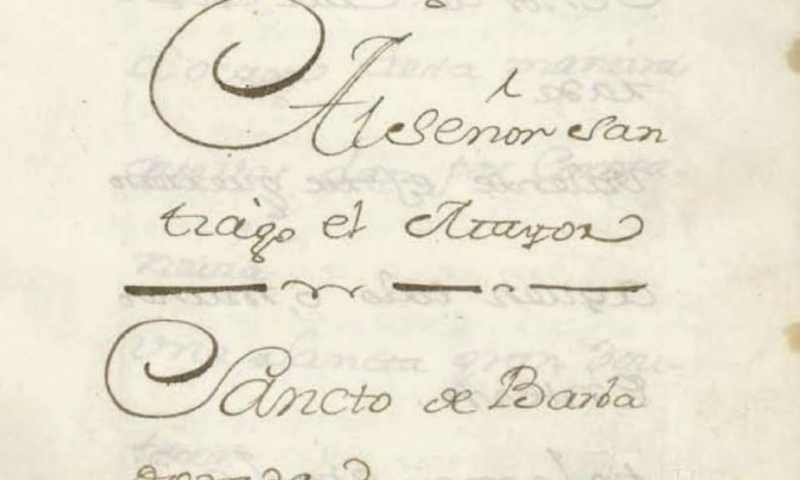 Al señor san
tiago el Mayor
Sancto de Barba